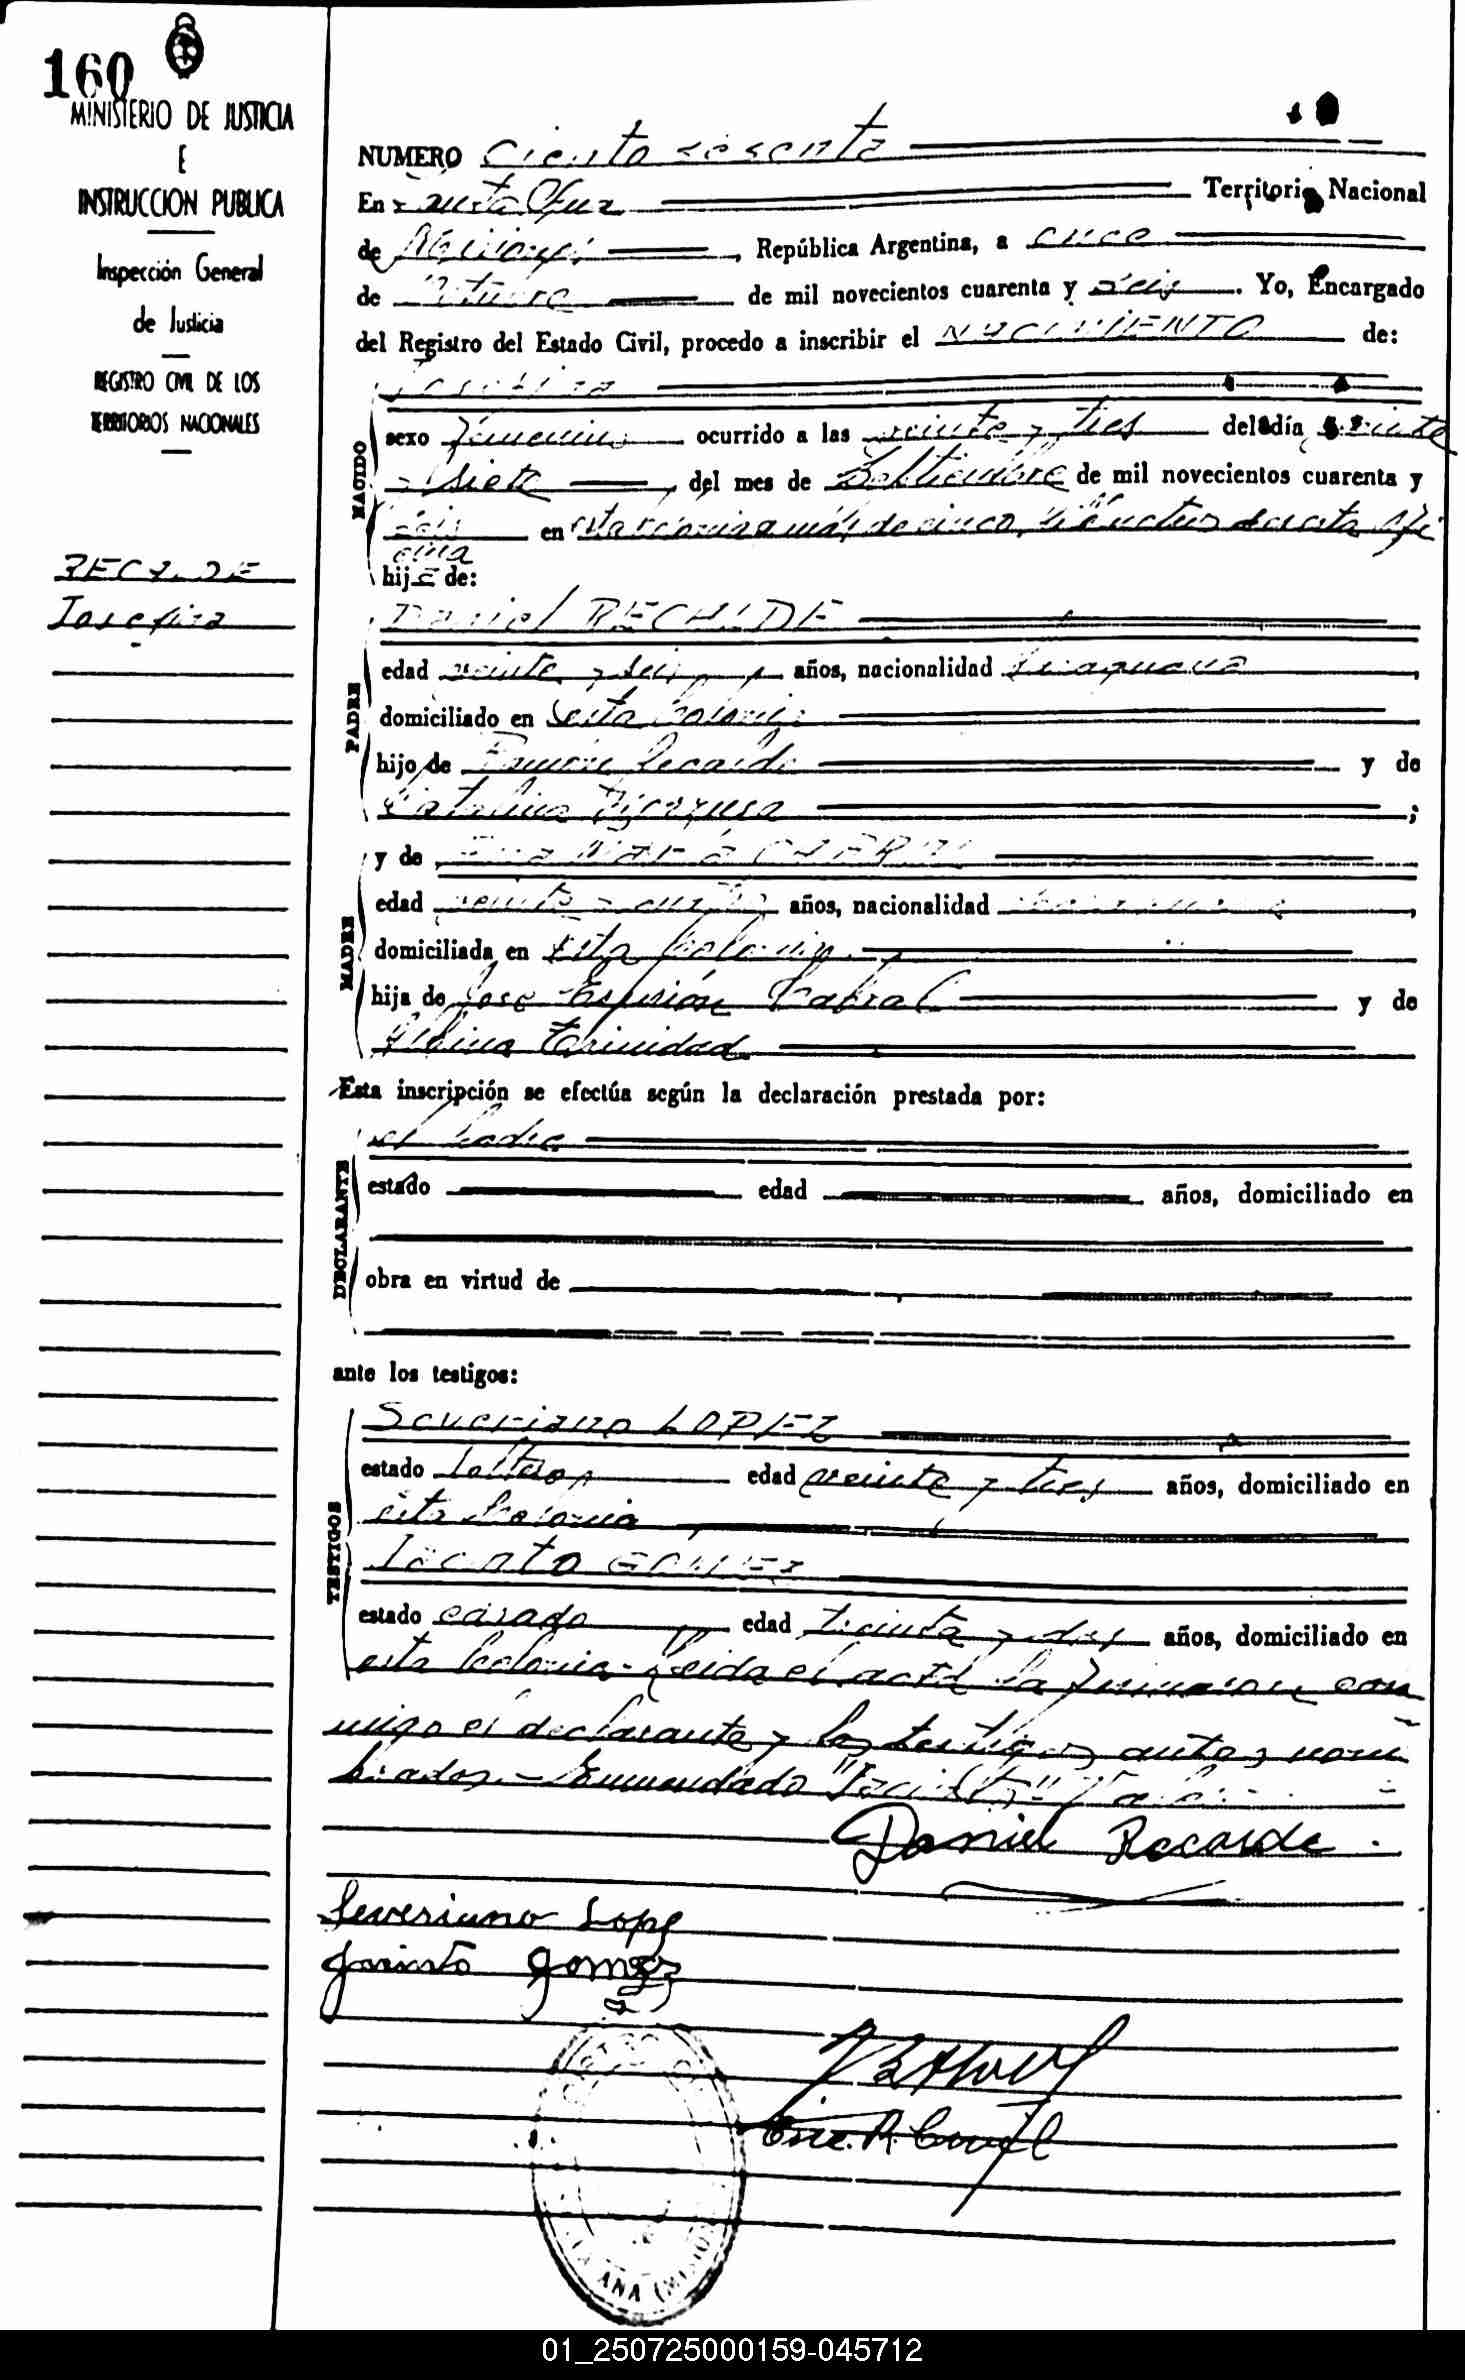 160
MINISTERIO DE JUSTICIA
E
INSTRUCCION PUBLICA
Inspección General
de Justicia
REGISTRO CIVIL DE LOS
TERRITORIOS NACIONALES
RECALDE
Josefina
NUMERO Ciento sesenta
En Santa Ana Territorio Nacional
de Misiones, República Argentina, a once
de Octubre de mil novecientos cuarenta y seis. Yo, Encargado
del Registro del Estado Civil, procedo a inscribir el NACIMIENTO de:
NACIDO
Josefina
sexo femenino ocurrido a las veinte y tres del día veinte
y siete, del mes de Septiembre de mil novecientos cuarenta y
seis en esta colonia a más de cinco kilómetros de esta ofi
cina
hija de:
PADRE
Daniel RECALDE
edad veinte y seis años, nacionalidad paraguaya
domiciliado en esta Colonia
hijo de Recalde y de
Catalina;
MADRE
y de CABRAL
edad veinte y años, nacionalidad
domiciliada en esta Colonia
hija de José Cabral y de
Albina Trinidad
Esta inscripción se efectúa según la declaración prestada por:
DECLARANTE
el padre
estado edad años, domiciliado en
obra en virtud de
ante los testigos:
TESTIGOS
Severiano LOPEZ
estado soltero edad veinte y tres años, domiciliado en
esta Colonia
Jacinto GOMEZ
estado casado edad treinta y dos años, domiciliado en
esta Colonia.- Leida el acta la firmaron con
migo el declarante y los testigos antes nom
brados.- Enmendado "Jacinto" Vale.
Daniel Recalde.
Severiano Lope
Jacinto Gomez
ANA (MISIO
01_250725000159-045712